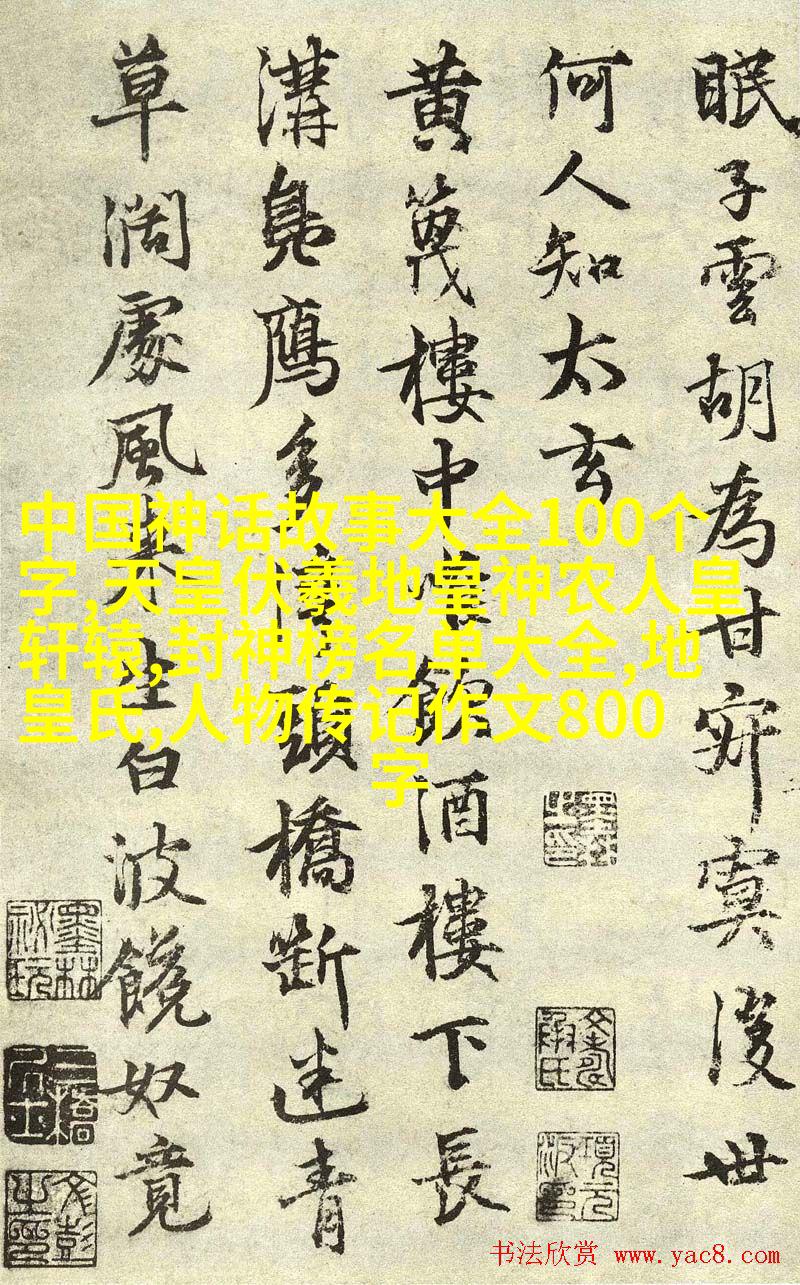 眠子雲胡為甘寂寞後世
何人知太玄
黄篾樓中飲酒樓下長
溝鳧鷹多頭橋斷迷青
草濶處風来生白波饒奴竟
中国神话故事大全100个
字,天皇伏羲地皇神农人皇
轩辕,封神榜名单大全,地
皇氏,人物传记作文800
字
书法欣赏 www.yac8.com